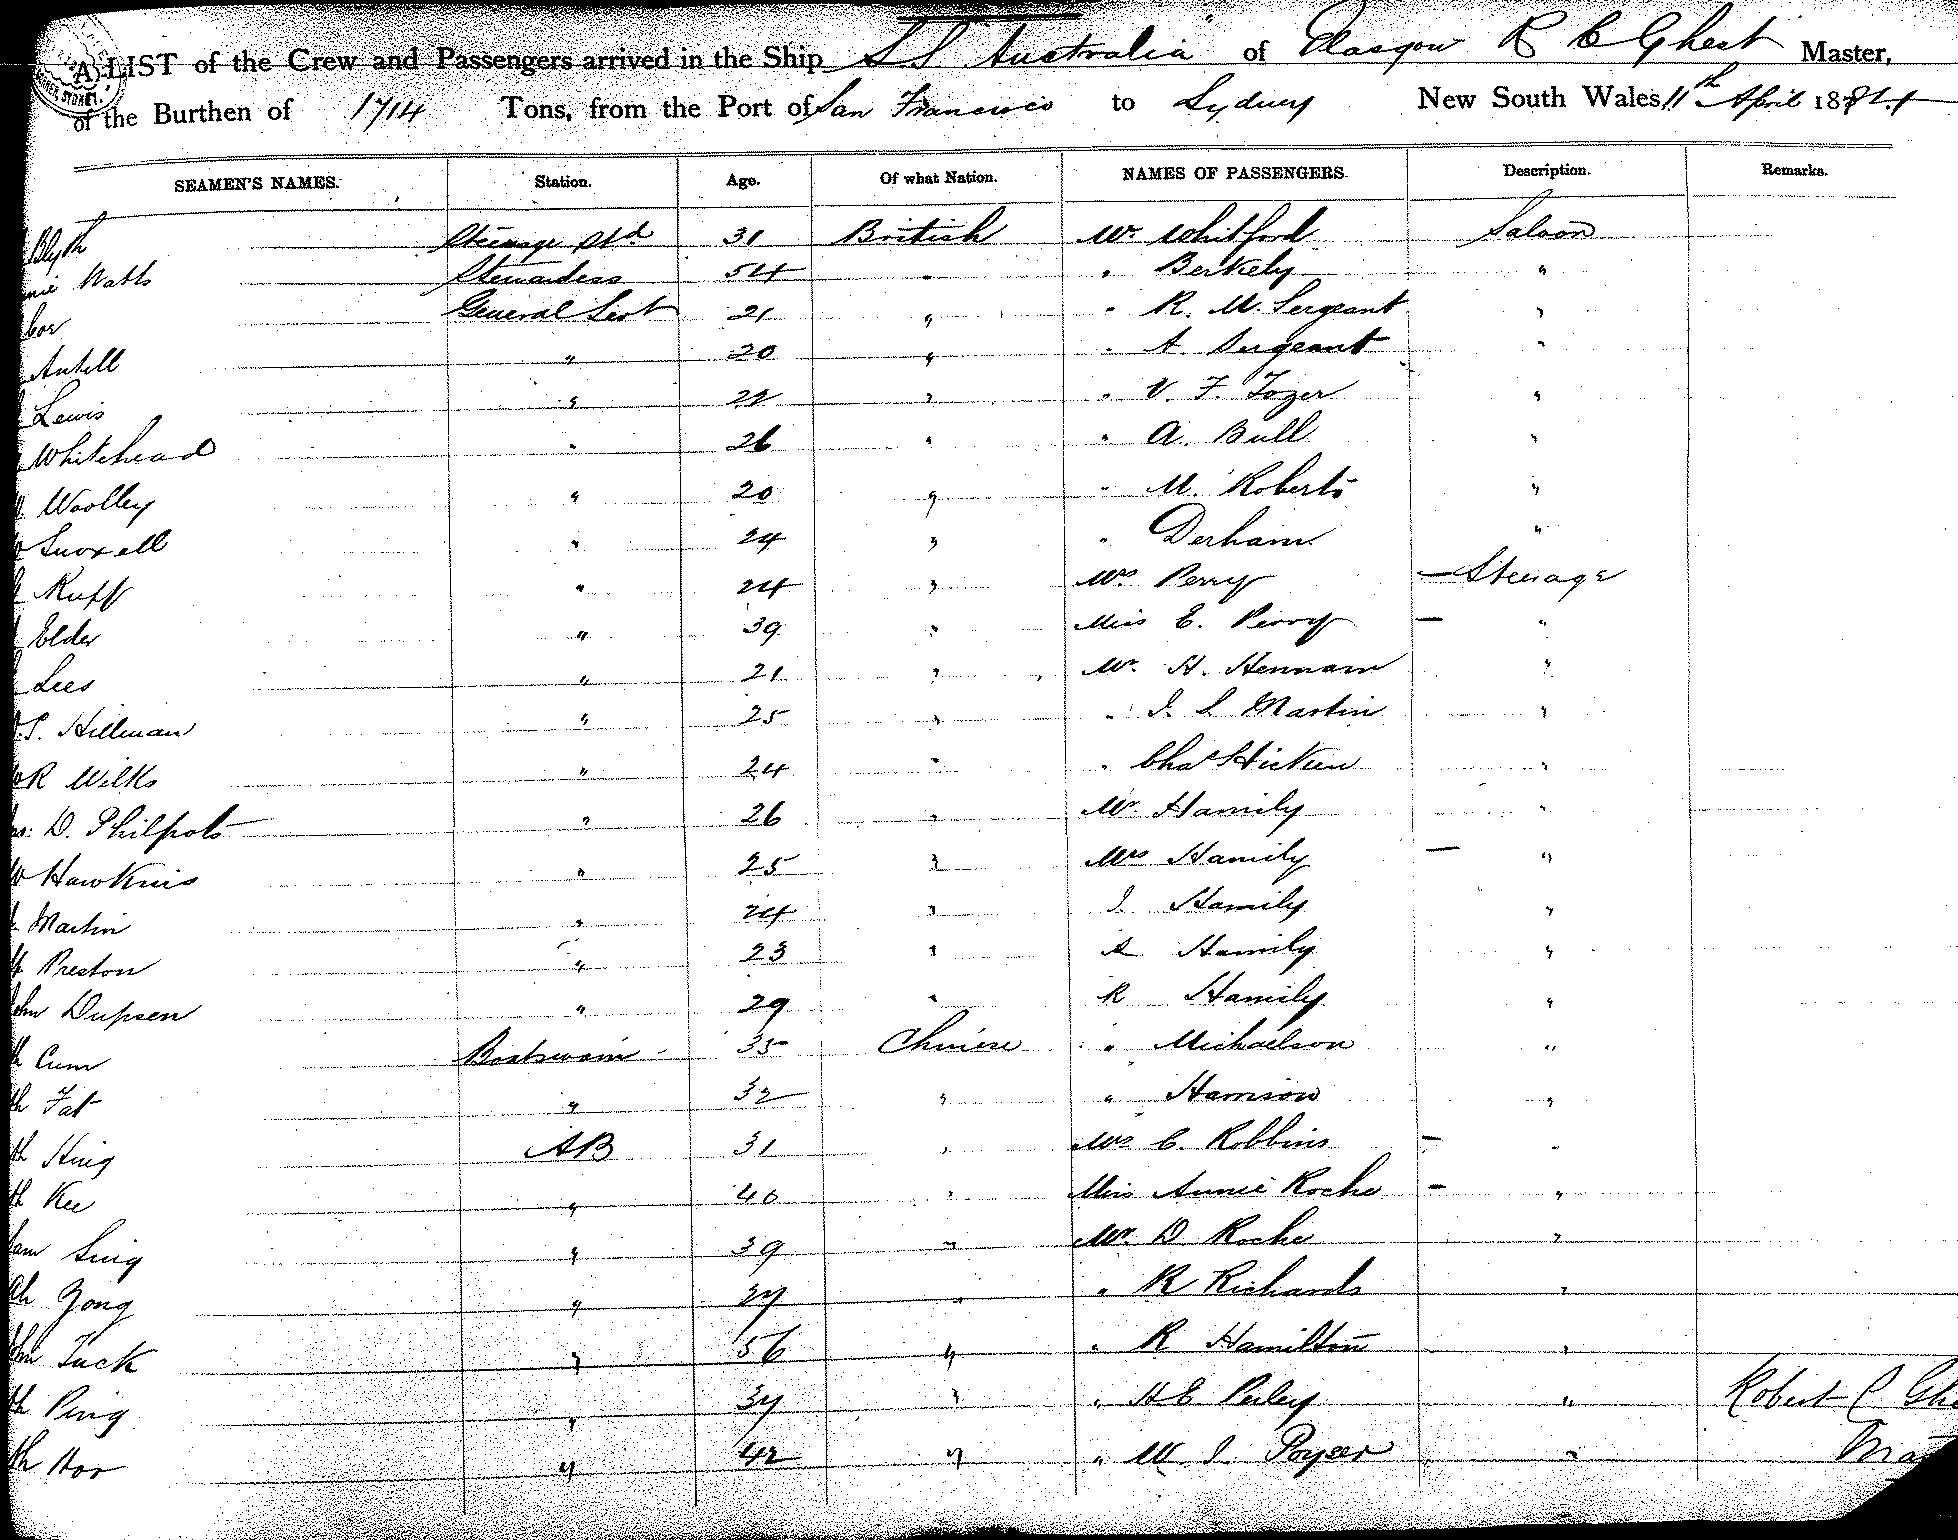 A LIST of the Crew and Passengers arrived in the Ship "SS Australia" of Glasgow R C Ghest Master,
of the Burthen of 1714 Tons, from the Port of San Francisco to Sydney New South Wales, 11th April 1881
SEAMEN'S NAMES. Station. Age. Of what Nation. NAMES OF PASSENGERS. Description. Remarks.
Blyth Steerage Std 31 British Mr Whitford Saloon
Watts Stewardess 54 " " Berkely "
General Sert 21 " " R. M. Sergeant "
Antill " 20 " " A. Sergeant "
Lewis " 22 " " V. F. Tozer "
Whitehead " 26 " " A. Bull "
Woolley " 20 " " M. Roberts "
Snoxell " 24 " " Derham "
Rupp " 24 " Mrs Perry — Steerage
Elder " 39 " Miss E. Perry — "
Lees " 21 " Mr. H. Hennam "
S. Hillman " 25 " " J. L Martin "
R Wilks " 24 " " Chas Hicken "
D. Philpots " 26 " Mr. Hamily "
Hawkins " 25 " Mrs Hamily — "
Martin " 24 " J Hamily "
Preston " 23 " A Hamily "
John Dupsen " 29 " R Hamily "
Cum Boatswain 35 Chinese " Michaelson "
Fat " 32 " " Harrison "
Hing AB 31 " Mrs C. Robbins — "
Kee " 40 " Miss Annie Roche — "
Sing " 39 " Mr. D Roche "
Ah Yong " 27 " " R Richards "
Tuck " 56 " " R Hamilton "
Ping " 37 " " H C Perley " Robert C Ghe
Hoo " 42 " " W J Poyser "